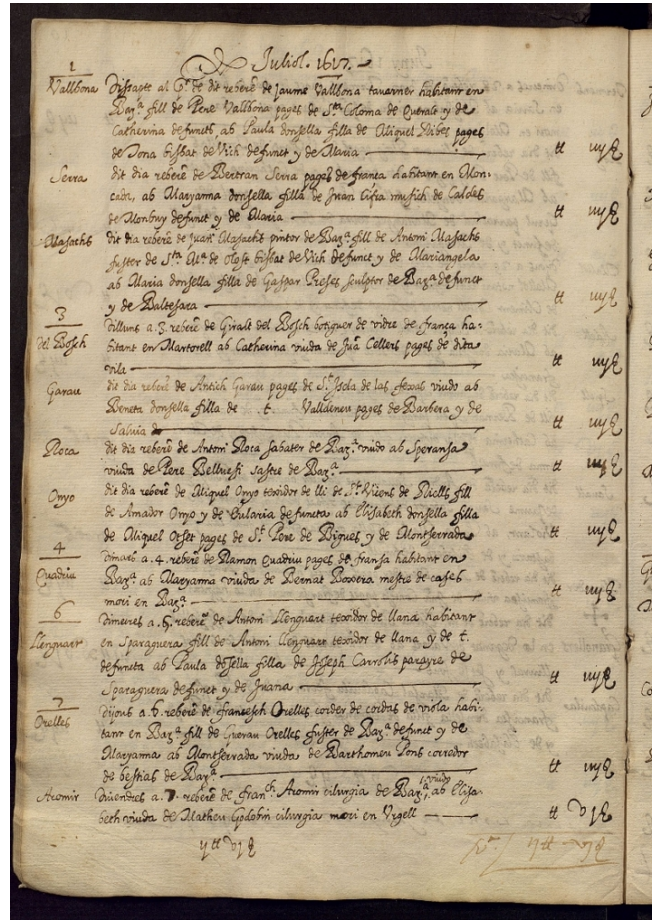 Juliol. 1617.
1
Vallbona Dissapte al p.r de dit rebere de Jaume Vallbona taverner habitant en
Bar.a fill de Pere Vallbona pages de S.ta Coloma de Queralt y de
Catherina defuncts, ab Paula donsella filla de Miquel Ribes pages
de Tona bisbat de Vich defunct y de Maria
Serra dit dia rebere de Bertran Serra pages de frança habitant en Mon-
cada, ab Maryanna donsella filla de Juan Cifra musich de Caldes
de Monbuy defunct y de Maria
Masachs dit dia rebere de Juan Masachs pintor de Bar.a fill de Antoni Masachs
fuster de S.ta M.a de olost bisbat de Vich defunct y de Mariangela
ab Maria donsella filla de Gaspar Preses sculptor de Bar.a defunct
y de Baltesara
3
Del Bosch Dilluns a 3. rebere de Giralt del Bosch botiguer de vidre de frança ha-
bitant en Martorell ab Catherina viuda de Jua Cellers pages de dita
vila
Garau dit dia rebere de Antich Garau pages de S.t Iscla de las fexas viudo ab
Beneta donsella filla de t. Valldeneu pages de Barbera y de
Salvia
Roca dit dia rebere de Antoni Roca sabater de Bar.a viudo ab Speransa
viuda de Pere sastre de Bar.a
Onyo dit dia rebere de Miquel Onyo texidor de lli de S.t Vicens de Riells fill
de Amador Onyo y de Eularia defuncta ab Elisabeth donsella filla
de Miquel Otset pages de S.t Pere de Bigues y de Montserrada
4
Quadriu Dimars a .4. rebere de Ramon Quadriu pages de fransa habitant en
Bar.a ab Maryanna viuda de Bernat Boxera mestre de cases
mori en Bar.a
6
Llenguart Dimecres a .5. rebere de Antoni Llenguart texidor de llana habitant
en Sparaguera fill de Antoni Llenguart texidor de llana y de t.
defuncta ab Paula dosella filla de Joseph Carrolis parayre de
Sparaguera defunct y de Juana
7
Orelles Dijous a .6. rebere de francesch Orelles corder de cordas de viola habi-
tant en Bar.a fill de Guerau Orelles fuster de Bar.a defunct y de
Maryanna ab Montserrada viuda de Barthomeu Pons corredor
de bestias de Bar.a
Aromir Divendres a .7. rebere de fran.ch Aromir cilurgia de Bar.a viudo, ab Elisa-
beth viuda de Matheu Godobin cilurgia mori en Urgell